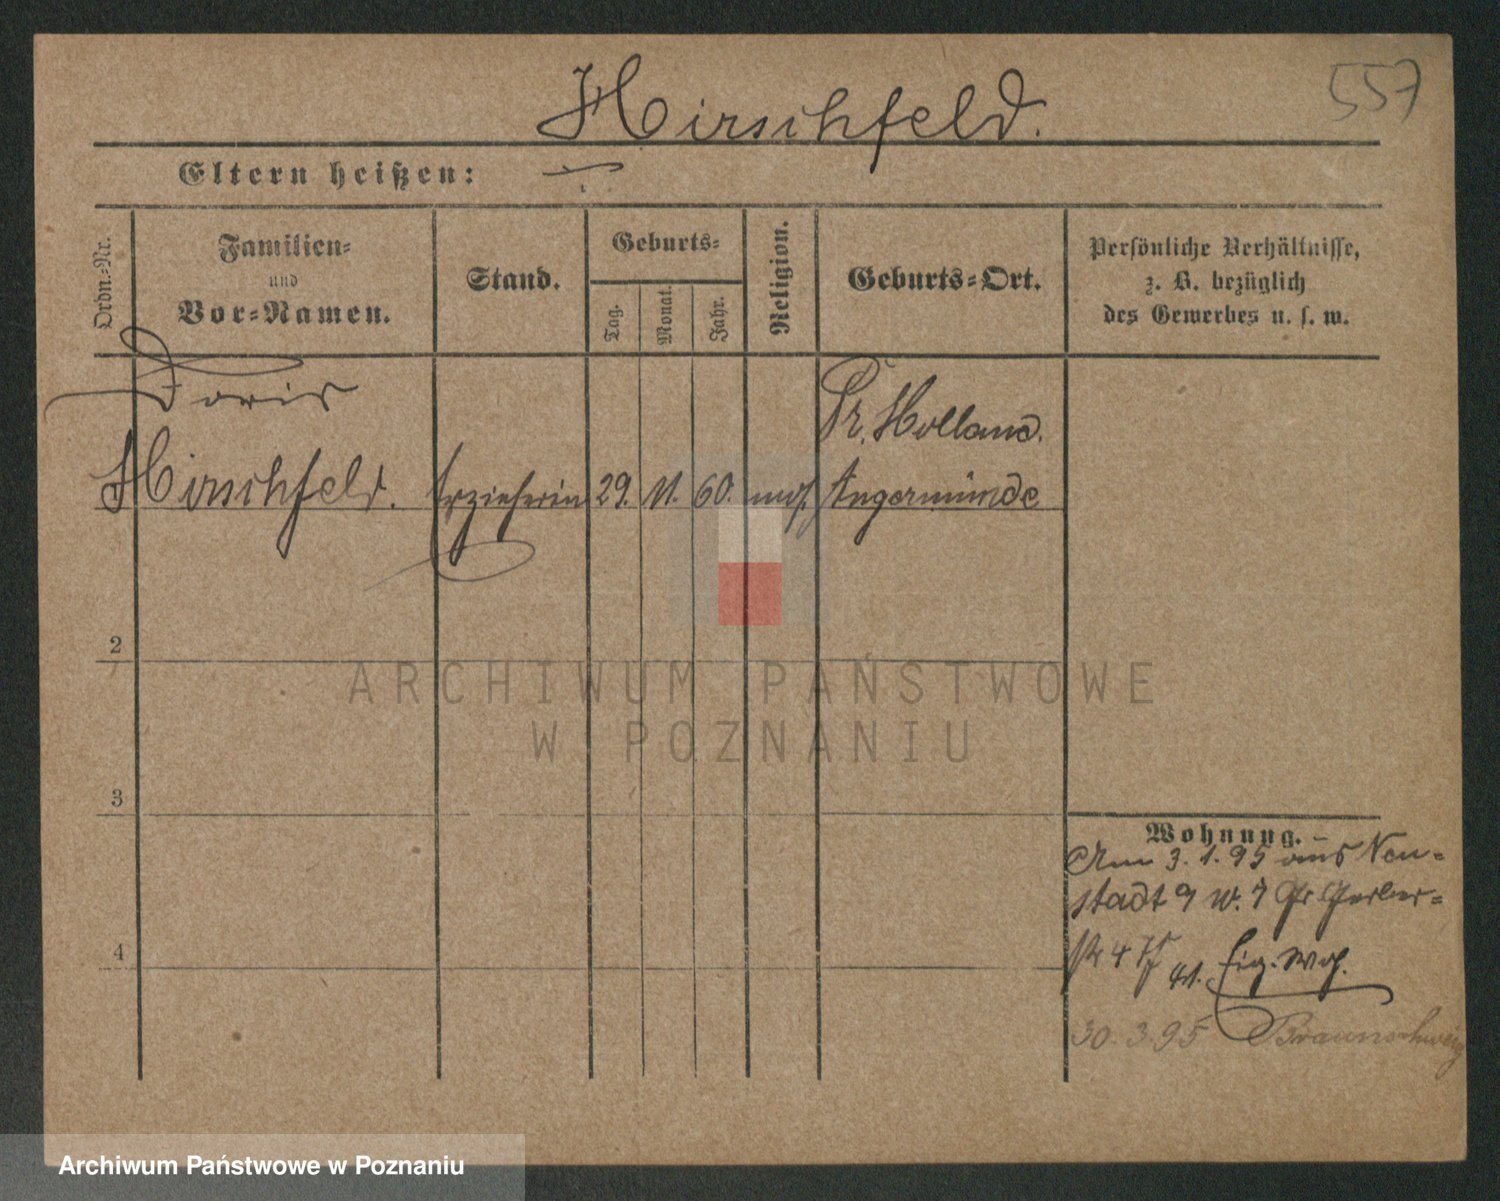 557
Hirschfeld.
Eltern heißen:
Ordn.-Nr.
Familien-
und
Vor-Namen.
Stand.
Geburts-
Tag.
Monat.
Jahr.
Religion.
Geburts-Ort.
Persönliche Verhältnisse,
z. B. bezüglich
des Gewerbes u. s. w.
Doris
Hirschfeld.
Erzieherin
29.
11.
60.
mos.
Pr. Holland.
Angermünde
2
3
4
Wohnung.
Am 3. 1. 95 aus Neu-
stadt 9 w. 7 Gr Gerber-
str 4
4.1. Eig. Wog.
30. 3. 95 Braunschweig
ARCHIWUM PAŃSTWOWE
W POZNANIU
Archiwum Państwowe w Poznaniu